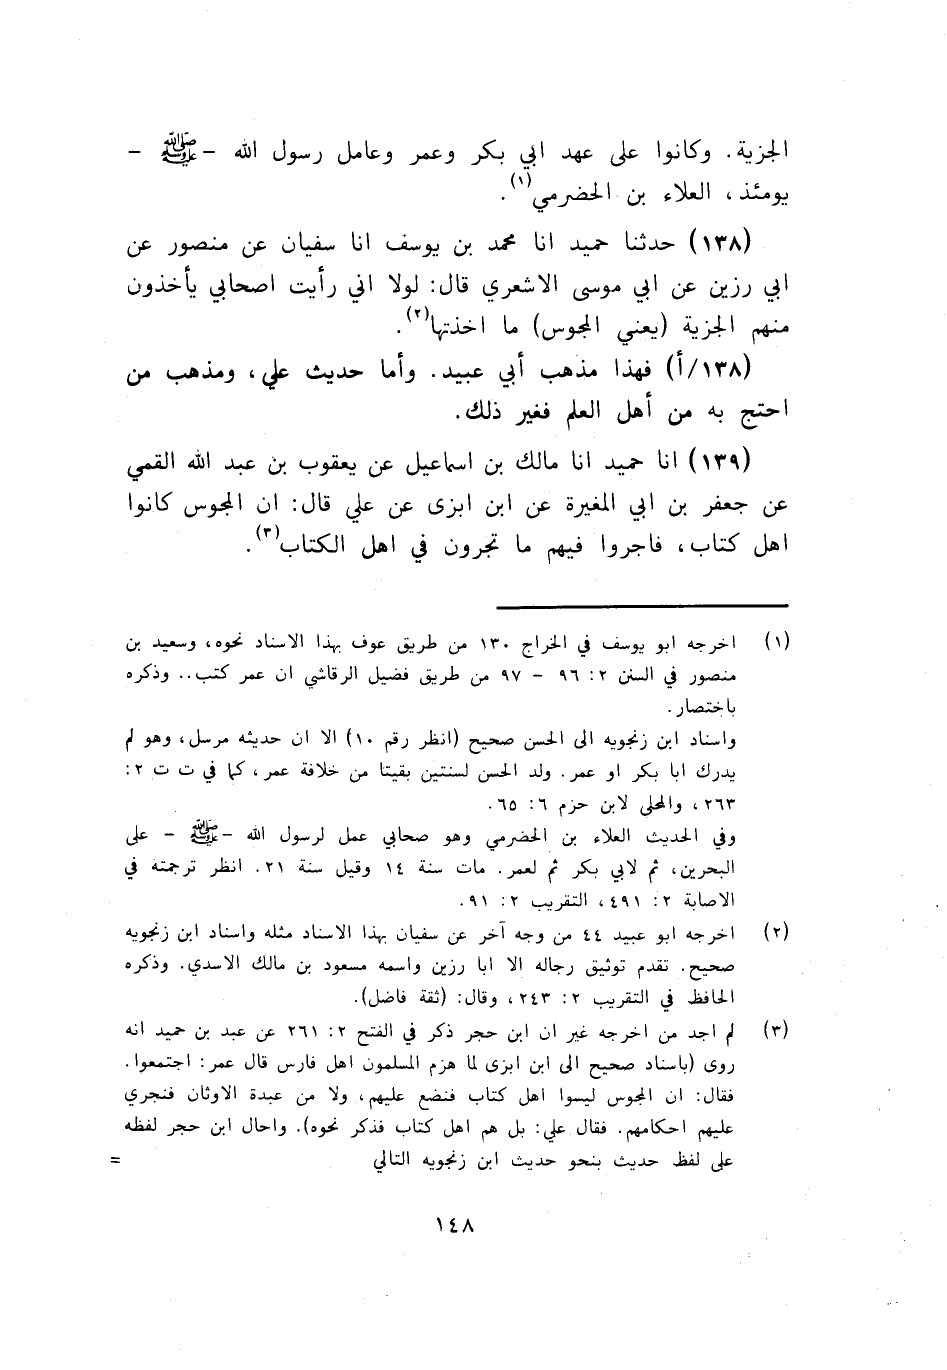 الجزية. وكانوا على عهد ابي بكر وعمر وعامل رسول الله - ﷺ -
يومئذ، العلاء بن الحضرمي(١).
(١٣٨) حدثنا حميد انا محمد بن يوسف انا سفيان عن منصور عن
ابي رزين عن ابي موسى الاشعري قال: لولا اني رأيت اصحابي يأخذون
منهم الجزية (يعني المجوس) ما اخذتها(٢).
(١٣٨/أ) فهذا مذهب أبي عبيد. وأما حديث علي، ومذهب من
احتج به من أهل العلم فغير ذلك.
(١٣٩) انا حميد انا مالك بن اسماعيل عن يعقوب بن عبد الله القمي
عن جعفر بن ابي المغيرة عن ابن ابزى عن علي قال: ان المجوس كانوا
اهل كتاب، فاجروا فيهم ما تجرون في اهل الكتاب(٣).
(١) اخرجه ابو يوسف في الخراج ١٣٠ من طريق عوف بهذا الاسناد نحوه، وسعيد بن
منصور في السنن ٢: ٩٦ - ٩٧ من طريق فضيل الرقاشي ان عمر كتب.. وذكره
باختصار.
واسناد ابن زنجويه الى الحسن صحيح (انظر رقم ١٠) الا ان حديثه مرسل، وهو لم
يدرك ابا بكر او عمر. ولد الحسن لسنتين بقيتا من خلافة عمر، كما في ت ت ٢:
٢٦٣، والمحلى لابن حزم ٦: ٦٥.
وفي الحديث العلاء بن الحضرمي وهو صحابي عمل لرسول الله - ﷺ - على
البحرين، ثم لابي بكر ثم لعمر. مات سنة ١٤ وقيل سنة ٢١. انظر ترجمته في
الاصابة ٢: ٤٩١، التقريب ٢: ٩١.
(٢) اخرجه ابو عبيد ٤٤ من وجه آخر عن سفيان بهذا الاسناد مثله واسناد ابن زنجويه
صحيح. تقدم توثيق رجاله الا ابا رزين واسمه مسعود بن مالك الاسدي. وذكره
الحافظ في التقريب ٢: ٢٤٣، وقال: (ثقة فاضل).
(٣) لم اجد من اخرجه غير ان ابن حجر ذكر في الفتح ٢: ٢٦١ عن عبد بن حميد انه
روى (باسناد صحيح الى ابن ابزى لما هزم المسلمون اهل فارس قال عمر: اجتمعوا.
فقال: ان المجوس ليسوا اهل كتاب فنضع عليهم، ولا من عبدة الاوثان فنجري
عليهم احكامهم. فقال علي: بل هم اهل كتاب فذكر نحوه). واحال ابن حجر لفظه
على لفظ حديث بنحو حديث ابن زنجويه التالي =
١٤٨